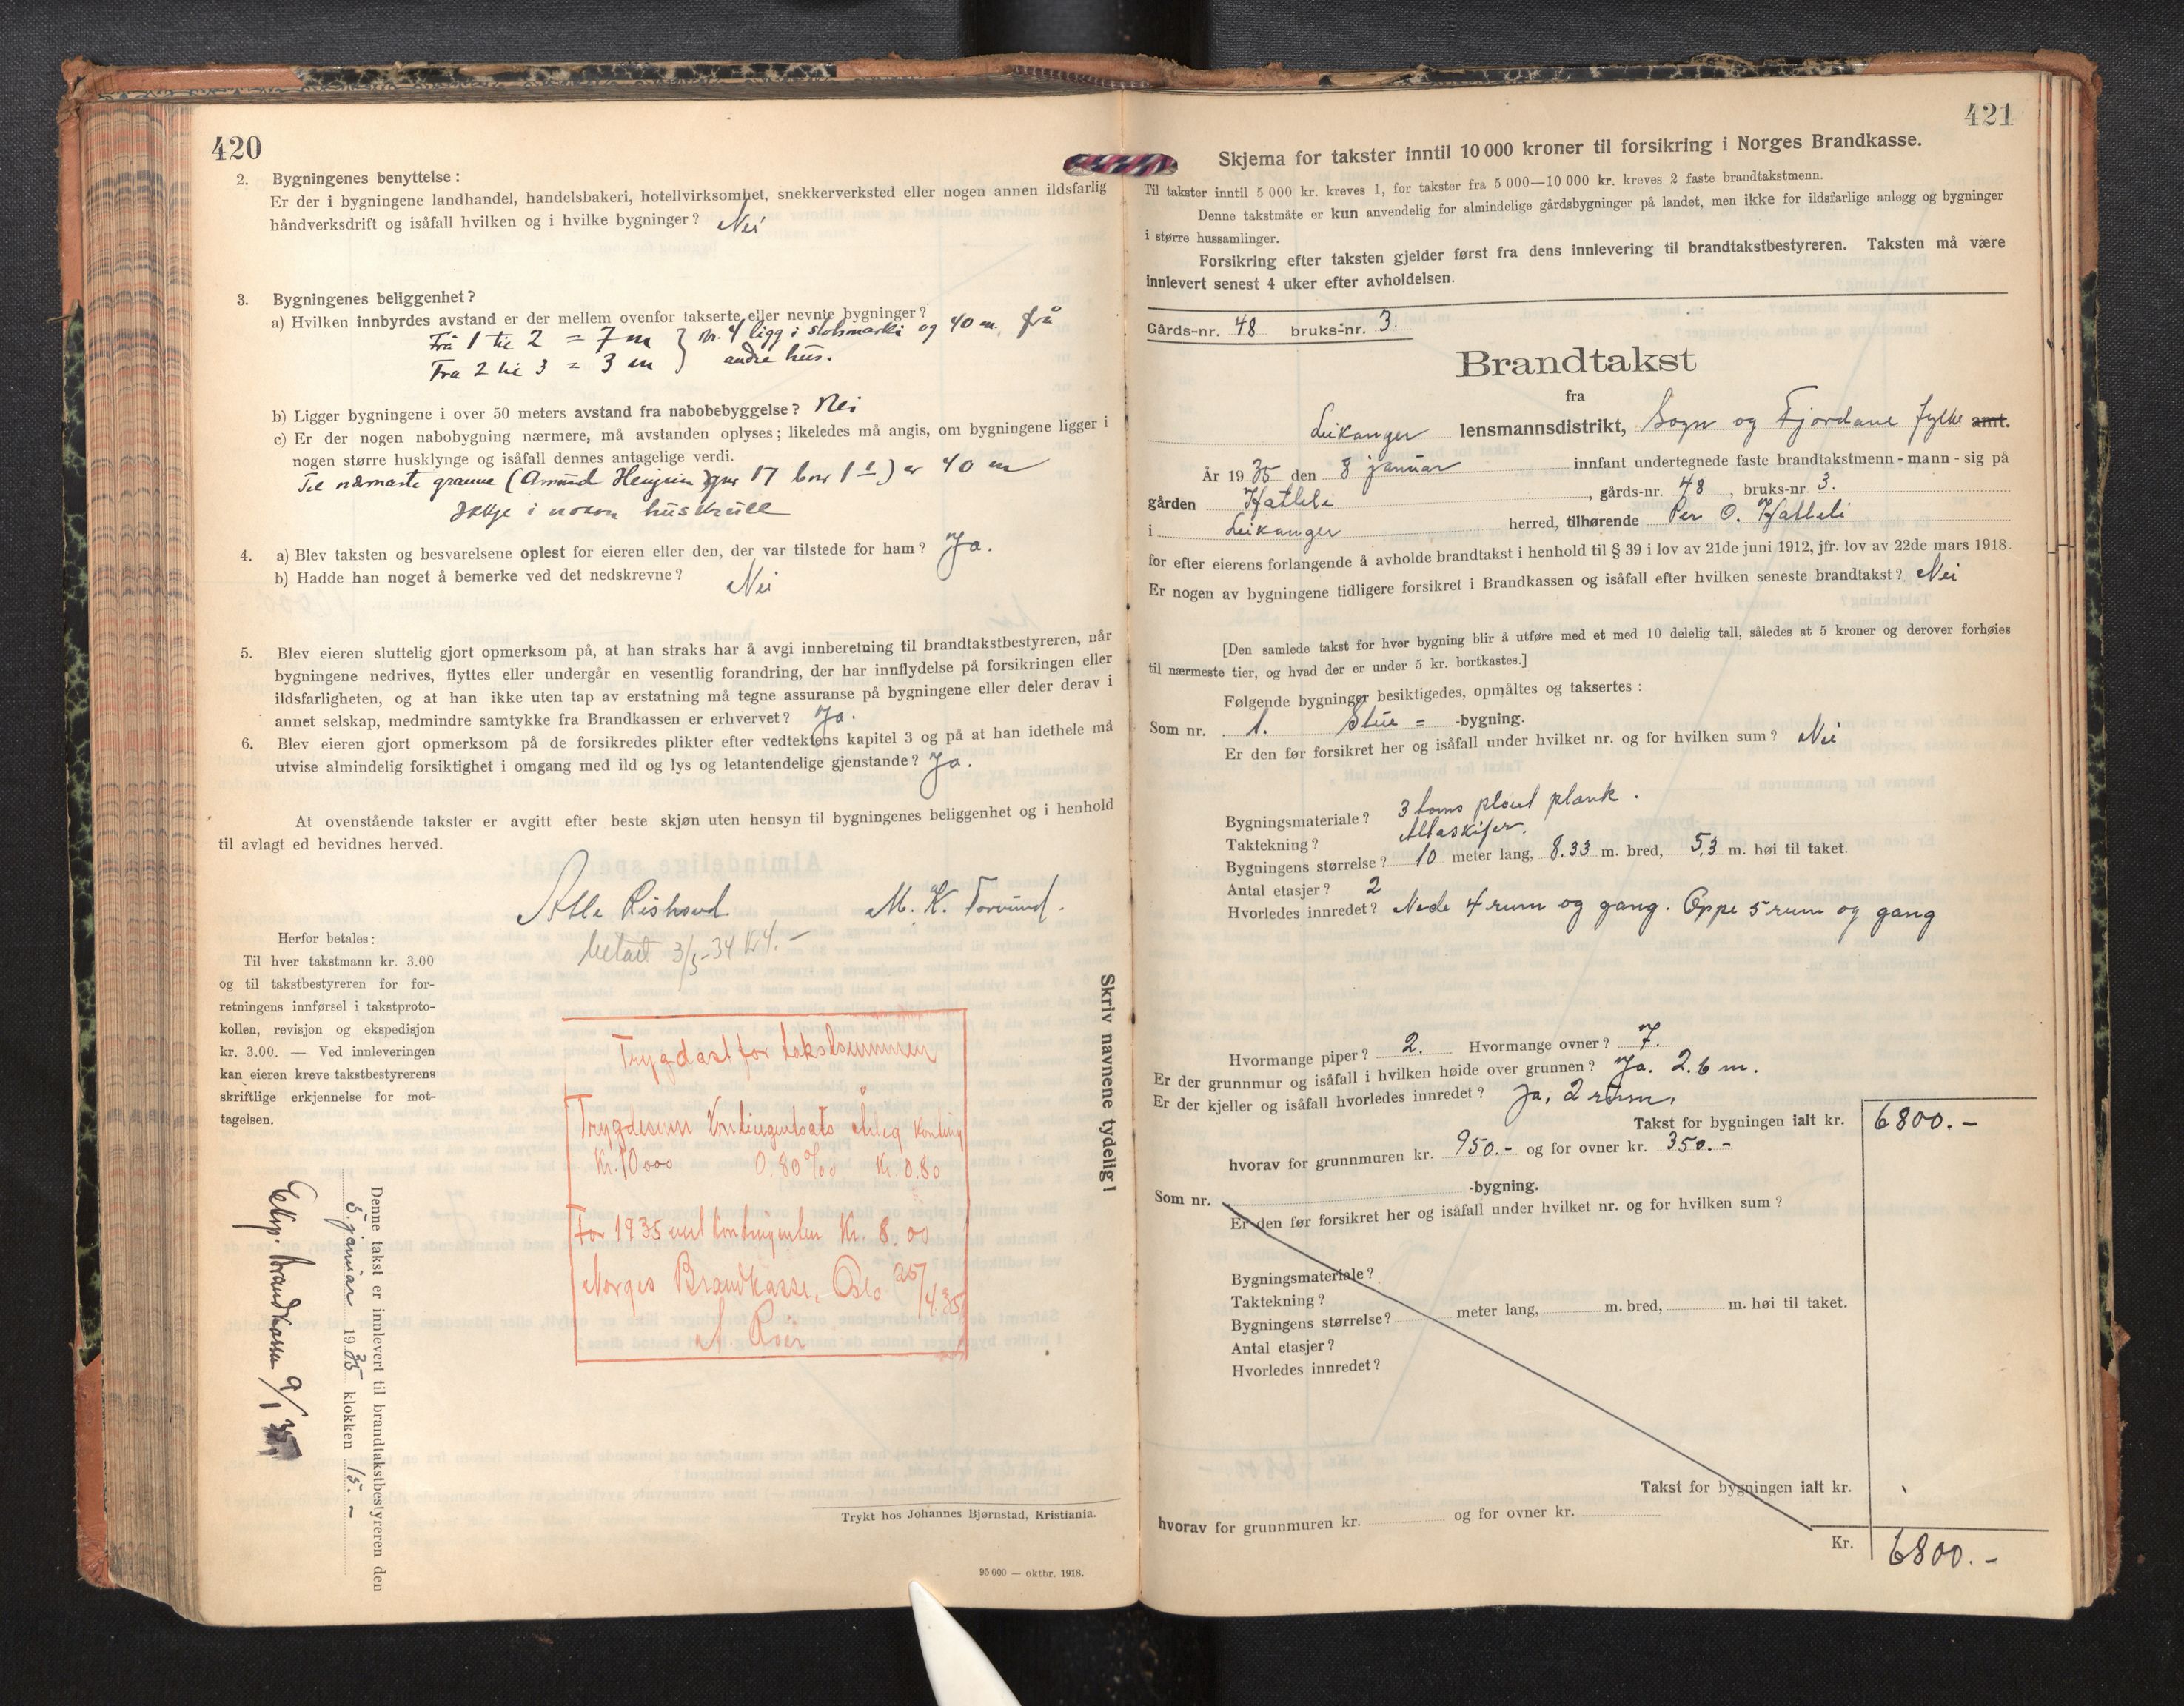 420
2. Bygningenes benyttelse:
Er der i bygningene landhandel, handelsbakeri, hotellvirksomhet, snekkerverksted eller nogen annen ildsfarlig
håndverksdrift og isåfall hvilken og i hvilke bygninger? Nei
3. Bygningenes beliggenhet?
a) Hvilken innbyrdes avstand er der mellem ovenfor takserte eller nevnte bygninger?
Frå 1 til 2 = 7 m } nr. 4 ligg i og 40 m. frå
Fra 2 til 3 = 3 m andre hus.
b) Ligger bygningene i over 50 meters avstand fra nabobebyggelse? Nei
c) Er der nogen nabobygning nærmere, må avstanden oplyses; likeledes må angis, om bygningene ligger i
nogen større husklynge og isåfall dennes antagelige verdi.
Til nærmaste granne (Amund Henjum gnr 17 bnr 1) er 40 m
Ikkje i nokon huskrull
4. a) Blev taksten og besvarelsene oplest for eieren eller den, der var tilstede for ham? Ja.
b) Hadde han noget å bemerke ved det nedskrevne? Nei
5. Blev eieren sluttelig gjort opmerksom på, at han straks har å avgi innberetning til brandtakstbestyreren, når
bygningene nedrives, flyttes eller undergår en vesentlig forandring, der har innflydelse på forsikringen eller
ildsfarligheten, og at han ikke uten tap av erstatning må tegne assuranse på bygningene eller deler derav i
annet selskap, medmindre samtykke fra Brandkassen er erhvervet? Ja.
6. Blev eieren gjort opmerksom på de forsikredes plikter efter vedtektens kapitel 3 og på at han idethele må
utvise almindelig forsiktighet i omgang med ild og lys og letantendelige gjenstande? Ja.
At ovenstående takster er avgitt efter beste skjøn uten hensyn til bygningenes beliggenhet og i henhold
til avlagt ed bevidnes herved.
M. K.
betalt 3/5-34 kr 4.-
Herfor betales:
Til hver takstmann kr. 3.00
og til takstbestyreren for for-
retningens innførsel i takstproto-
kollen, revisjon og ekspedisjon
kr. 3.00. — Ved innleveringen
kan eieren kreve takstbestyrerens
skriftlige erkjennelse for mot-
tagelsen.
Trygdast for takstsummen
Trygdesum Kontingentsats årleg konting
Kr. 10 000 0.80 ‰ Kr. 0.80
For 1935 vert kontingenten Kr. 8.00
Norges Brandkasse, Oslo 25/4 35
Denne takst er innlevert til brandtakstbestyreren den
5. januar 1935 klokken 15.-
Eksp. Brandkassen 9/1 35
Skriv navnene tydelig!
Trykt hos Johannes Bjørnstad, Kristiania.
95 000 — oktbr. 1918.
421
Skjema for takster inntil 10 000 kroner til forsikring i Norges Brandkasse.
Til takster inntil 5 000 kr. kreves 1, for takster fra 5 000—10 000 kr. kreves 2 faste brandtakstmenn.
Denne takstmåte er kun anvendelig for almindelige gårdsbygninger på landet, men ikke for ildsfarlige anlegg og bygninger
i større hussamlinger.
Forsikring efter taksten gjelder først fra dens innlevering til brandtakstbestyreren. Taksten må være
innlevert senest 4 uker efter avholdelsen.
Gårds-nr. 48 bruks-nr. 3.
Brandtakst
fra
Leikanger lensmannsdistrikt, Sogn og Fjordane fylke amt.
År 1935 den 8 januar innfant undertegnede faste brandtakstmenn - mann - sig på
gården Hatlele, gårds-nr. 48, bruks-nr. 3.
i Leikanger herred, tilhørende Per O. Hatleli
for efter eierens forlangende å avholde brandtakst i henhold til § 39 i lov av 21de juni 1912, jfr. lov av 22de mars 1918.
Er nogen av bygningene tidligere forsikret i Brandkassen og isåfall efter hvilken seneste brandtakst? Nei
[Den samlede takst for hver bygning blir å utføre med et med 10 delelig tall, således at 5 kroner og derover forhøies
til nærmeste tier, og hvad der er under 5 kr. bortkastes.]
Følgende bygninger besiktigedes, opmåltes og taksertes:
Som nr. 1. Stue = -bygning.
Er den før forsikret her og isåfall under hvilket nr. og for hvilken sum? Nei
Bygningsmateriale? 3 toms pløid plank.
Taktekning? Altaskifer.
Bygningens størrelse? 10 meter lang, 8.33 m. bred, 5.3 m. høi til taket.
Antal etasjer? 2
Hvorledes innredet? Nede 4 rum og gang. Oppe 5 rum og gang
Hvormange piper? 2. Hvormange ovner? 7.
Er der grunnmur og isåfall i hvilken høide over grunnen? Ja. 2.6 m.
Er der kjeller og isåfall hvorledes innredet? Ja, 2 rum.
Takst for bygningen ialt kr. 6800.-
hvorav for grunnmuren kr. 950.- og for ovner kr. 350.-
Som nr. -bygning.
Er den før forsikret her og isåfall under hvilket nr. og for hvilken sum?
Bygningsmateriale?
Taktekning?
Bygningens størrelse? meter lang, m. bred, m. høi til taket.
Antal etasjer?
Hvorledes innredet?
Takst for bygningen ialt kr.
hvorav for grunnmuren kr. og for ovner kr.
Kr. 6800.-